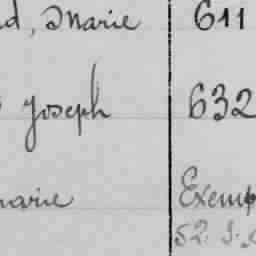 d, Marie 611
Joseph 632
marie Exemp
52.